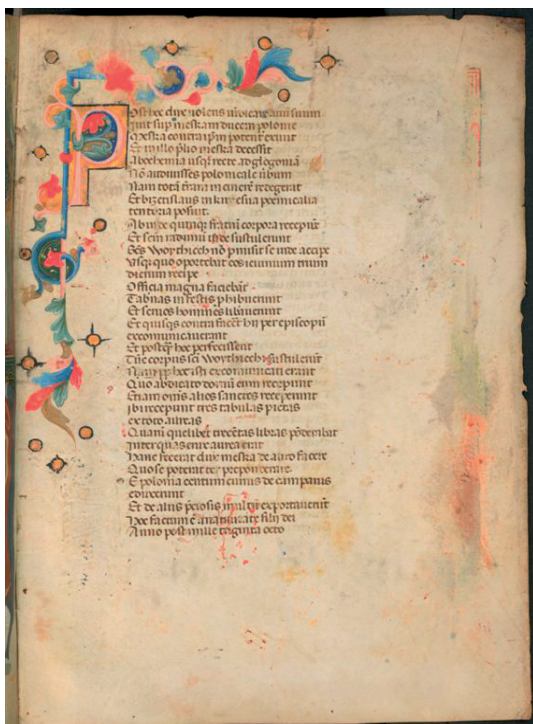 Post hec dux uolens
iuit sup meskam ducem polonie
Meska contra ipm potent exiuit
Et in illo plio meska decessit
A bohemia usqȝ recte ad glogouia
Nō audiuisses polonicale ūbum
Nam totā trām in cinerē redegerat
Et brzetislaus in kmesua
tentoria posuit.
Ab inde quinqȝ fratrū corpora recepit
Et scm radimū inde sustulerunt
Scs Woythiech nō pmisit se inde accipe
Usqȝ quo oportebat eos ieiunium trium
dierum recipe
Officia magna faciebāt
Tabnas in festis phibuerunt
Et semet homines
Et quisqȝ contra facēt hij per episcopū
excomunicauerant
Et postqȝ hec perfecissent
Tūc corpus sci Woythiech sustulerūt
Nam pp hec isti excomunicati erant
Quo abdicato domī eum receperunt
Etiam omīs alios sanctos receperunt
ibi receperunt tres tabulas pictas
ex toto auratas
Quarū quelibet trecētas libras pōderabat
Inter quas aurea erat
Hanc fecerat dux meska de auro facere
Quo se poterat ter preponderare
E polonia centum currus de campanis
eduxerunt
Et de aliis pciosis multū exportauerūt
Hoc factum ē a natiuitate filij dei
Anno post mille triginta octo